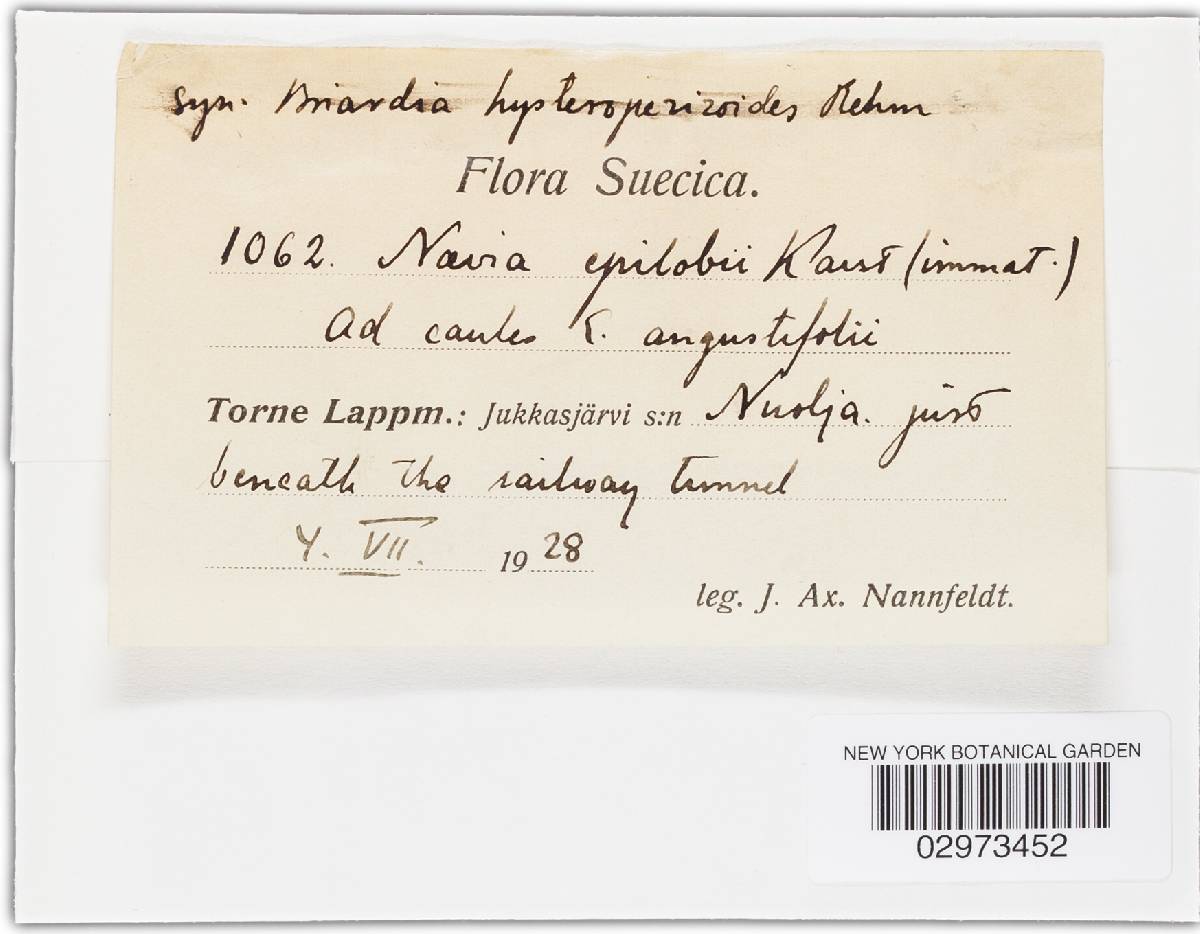 syn. Briardia hysteropezizoides Rehm
Flora Suecica.
1062. Nævia epilobii Karst (immat.)
Ad caules E. angustifolii
Torne Lappm.: Jukkasjärvi s:n Nuolja. just
beneath the railway tunnel
4. VII. 1928
leg. J. Ax. Nannfeldt.
NEW YORK BOTANICAL GARDEN
02973452